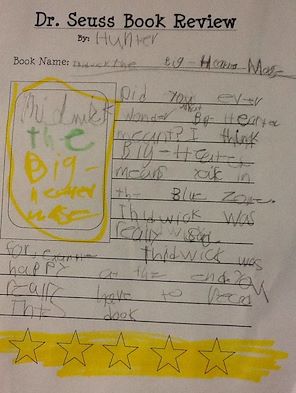 Dr. Seuss Book Review
By: Hunter
Book Name: Thidwick the Big-Hearted Mose
Thidwick
the
Big-
hearted
mose
Did you ever
wonder what Big-Hearted
meant? I think
Big-Hearted
means your in
the Blue Zone.
Thidwick was
really
for example Thidwick was
happy at the end. You
really have to read
this book